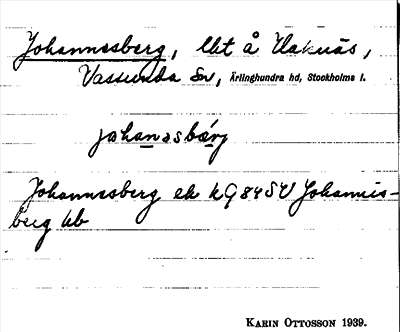 Johannesberg, lht å Vlaknäs,
Vassunda Sn, Ärlinghundra hd, Stockholms l.
johanasbærj
Johannesberg ek kG84SV Johannis-
berg hb
KARIN OTTOSSON 1939.